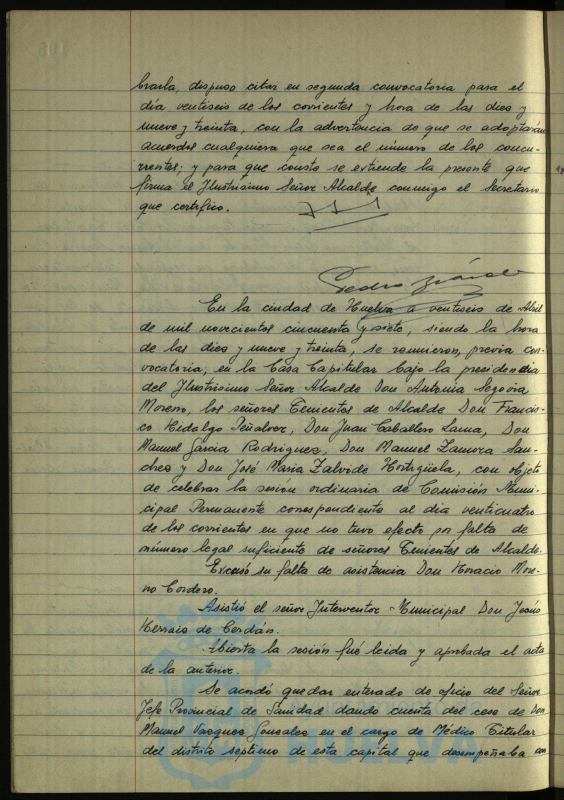 brarla, dispuso citar en segunda convocatoria para el
dia ventiseis de los corrientes y hora de las diez y
nueve y treinta, con la advertencia de que se adoptarán
acuerdos cualquiera que sea el número de los concu-
rrentes; y para que conste se extiende la presente que
firma el Ilustrísimo Señor Alcalde conmigo el Secretario
que certifico.
Pedro
En la ciudad de Huelva a ventiseis de Abril
de mil novecientos cincuenta y siete, siendo la hora
de las diez y nueve y treinta, se reunieron, previa con-
vocatoria, en la Casa Capitular bajo la presidencia
del Ilustrísimo Señor Alcalde Don Antonio Segovia
Moreno, los señores Tenientes de Alcalde Don Francis-
co Hidalgo Peñalver, Don Juan Caballero Lama, Don
Manuel Garcia Rodriguez, Don Manuel Zamora San-
chez y Don José Maria Zalvide Hortigüela, con objeto
de celebrar la sesión ordinaria de Comisión Muni-
cipal Permanente correspondiente al día venticuatro
de los corrientes en que no tuvo efecto por falta de
número legal suficiente de señores Tenientes de Alcalde.
Excusó su falta de asistencia Don Horacio More-
no Cordero.
Asistió el señor Interventor Municipal Don Jesús
Herraiz de Cerdán.
Abierta la sesión fué leida y aprobada el acta
de la anterior.
Se acordó quedar enterado de oficio del Señor
Jefe Provincial de Sanidad dando cuenta del cese de Don
Manuel Vazquez Gonzalez en el cargo de Médico Titular
del distrito septimo de esta capital que desempeñaba con